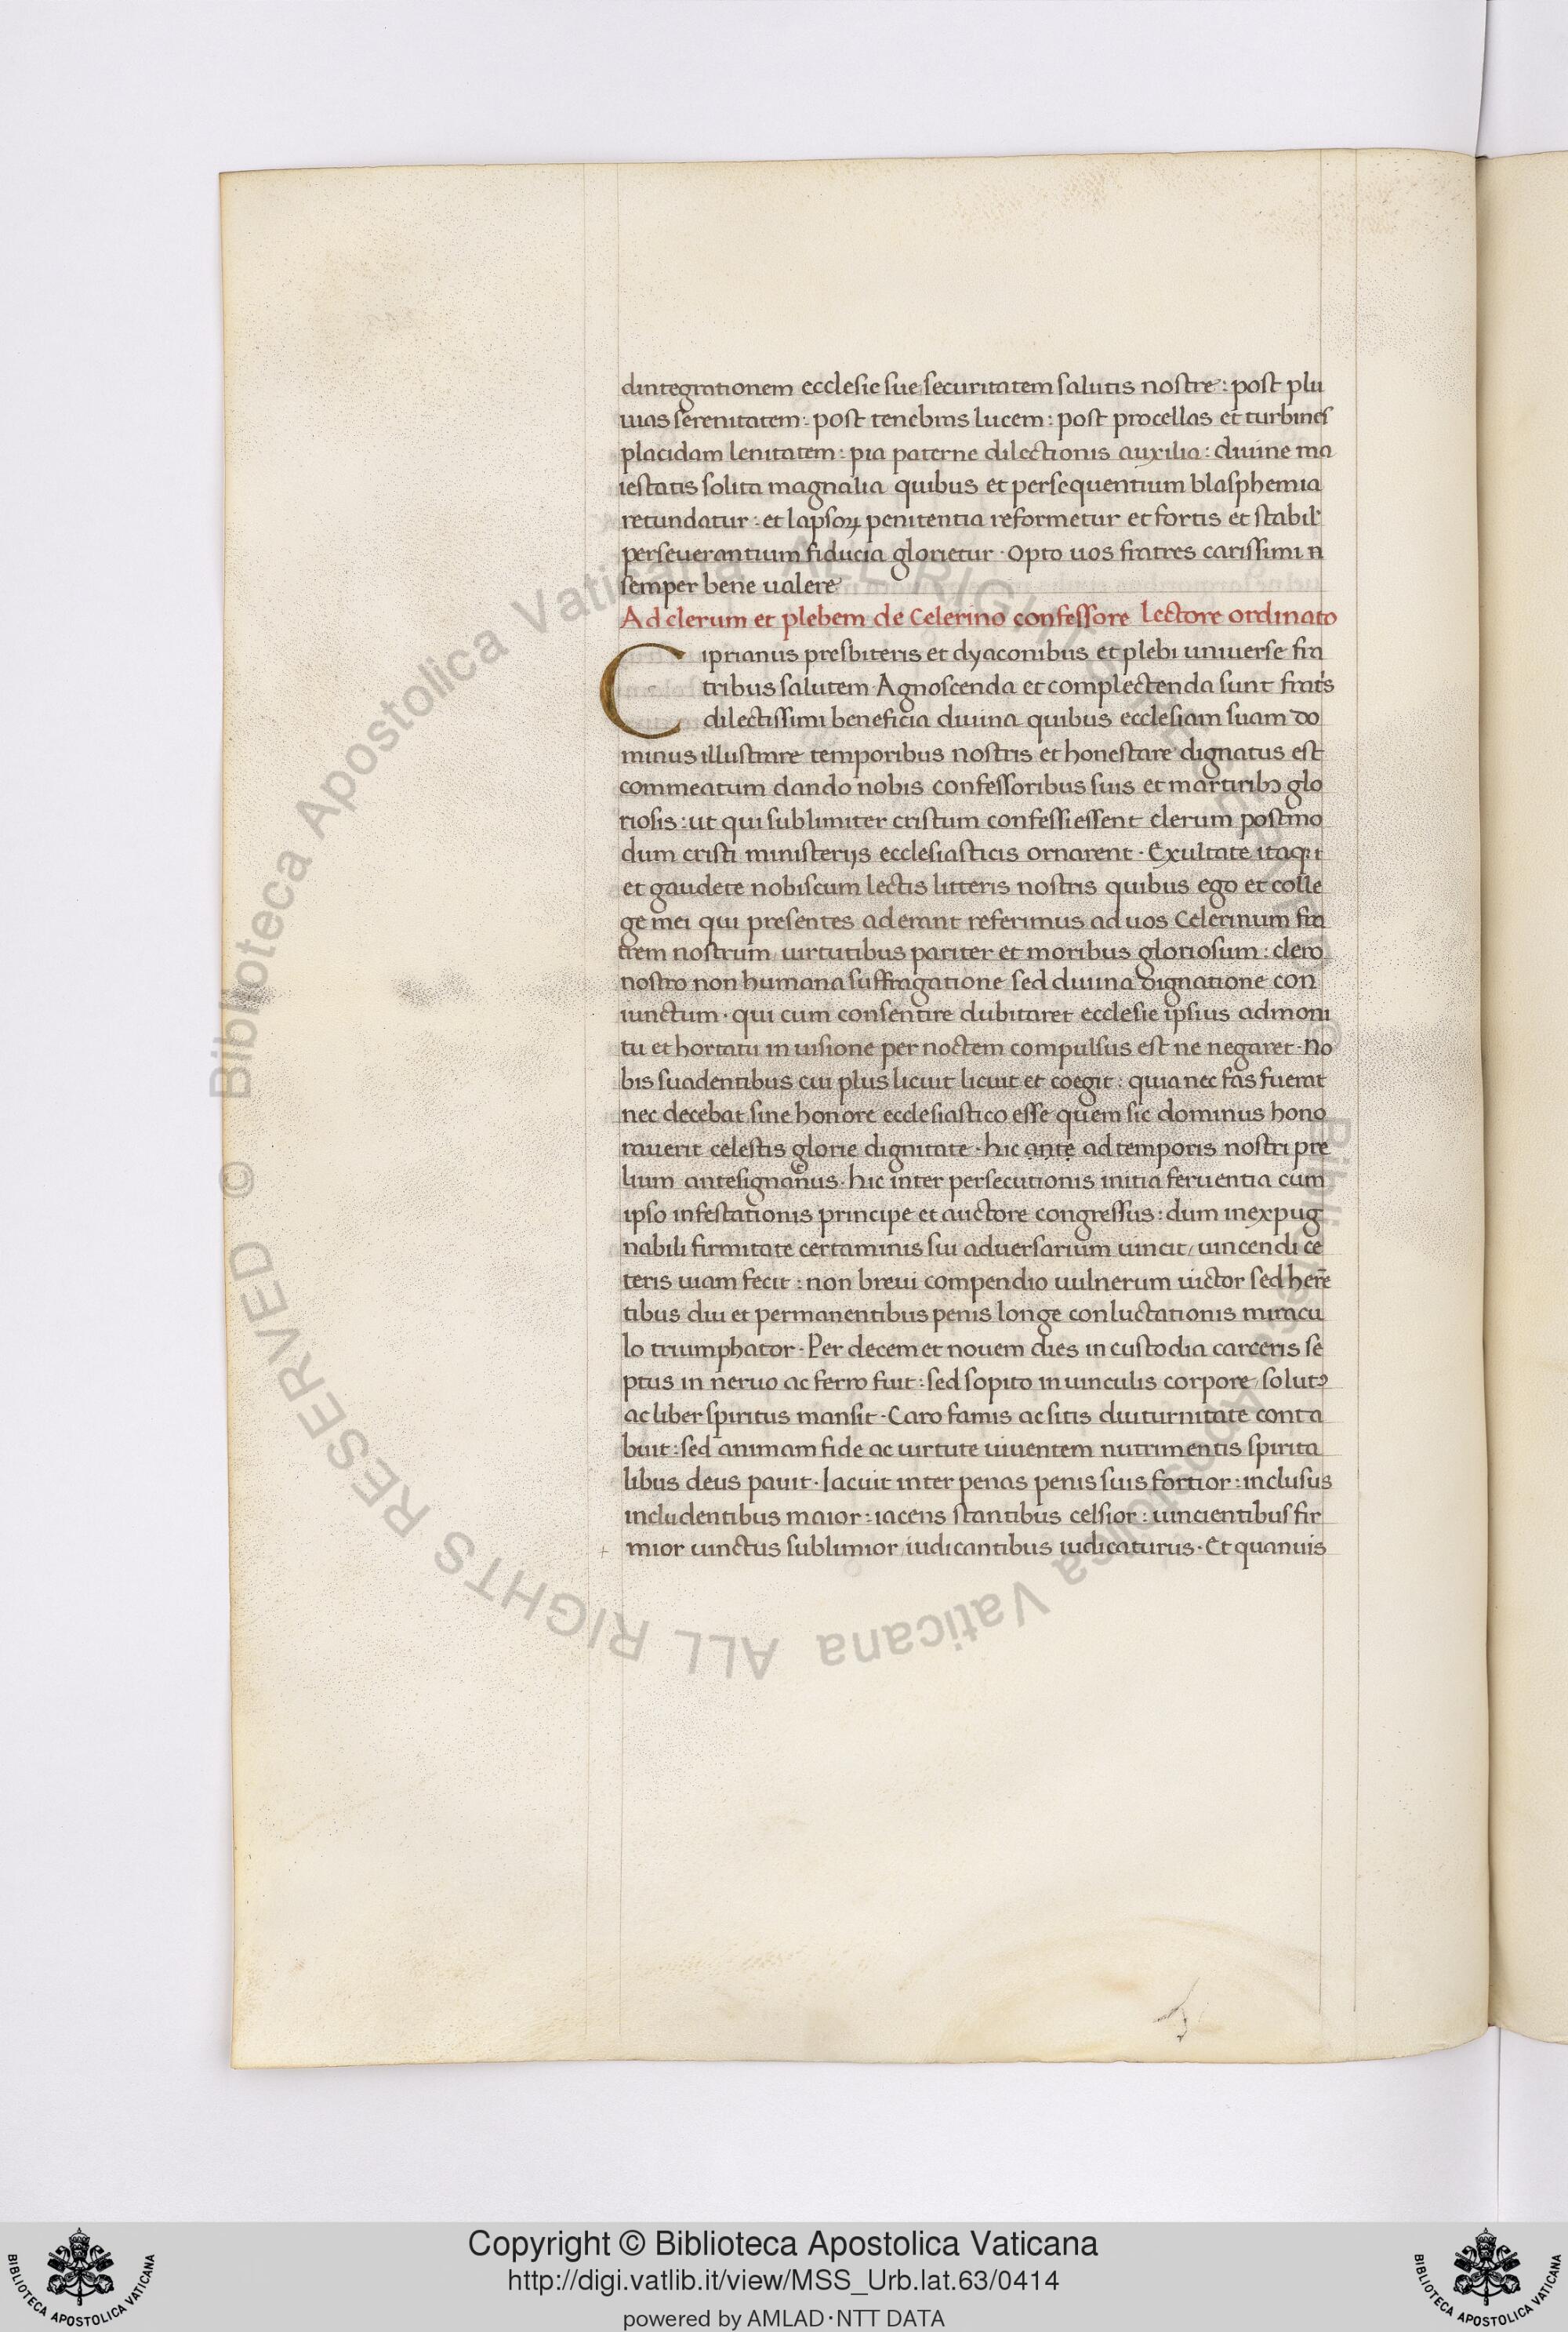 dintegrationem ecclesie sue securitatem salutis nostre : post plu
uias serenitatem : post tenebras lucem : post procellas et turbines
placidam lenitatem : pia paterne dilectionis auxilia : diuine ma
iestatis solita magnalia quibus et persequentium blasphemia
retundatur : et lapsoꝝ penitentia reformetur et fortis et stabil'
perseuerantium fiducia glorietur · Opto uos fratres carissimi n
semper bene ualere
Ad clerum et plebem de Celerino confessore lectore ordinato
Ciprianus presbiteris et dyaconibus et plebi uniuerse fra
tribus salutem Agnoscenda et complectenda sunt frat's
dilectissimi beneficia diuina quibus ecclesiam suam do
minus illustrare temporibus nostris et honestare dignatus est
commeatum dando nobis confessoribus suis et martiribꝰ glo
riosis : ut qui sublimiter cristum confessi essent clerum postmo
dum cristi ministerijs ecclesiasticis ornarent · Exultate itaqꝫ
et gaudete nobiscum lectis litteris nostris quibus ego et colle
ge mei qui presentes aderant referimus ad uos Celerinum fra
trem nostrum uirtutibus pariter et moribus gloriosum : clero
nostro non humana suffragatione sed diuina dignatione con
iunctum · qui cum consentire dubitaret ecclesie ipsius admoni
tu et hortatu in uisione per noctem compulsus est ne negaret · No
bis suadentibus cui plus licuit licuit et coegit : quia nec fas fuerat
nec decebat sine honore ecclesiastico esse quem sic dominus hono
rauerit celestis glorie dignitate · hic ante ad temporis nostri pre
lium antesignanus · hic inter persecutionis initia feruentia cum
ipso infestationis principe et auctore congressus : dum inexpug
nabili firmitate certaminis sui aduersarium uincit / uincendi ce
teris uiam fecit : non breui compendio uulnerum uictor sed herē
tibus diu et permanentibus penis longe conluctationis miracu
lo triumphator · Per decem et nouem dies in custodia carceris se
ptus in neruo ac ferro fuit : sed sopito in uinculis corpore / solutꝰ
ac liber spiritus mansit · Caro famis ac sitis diuturnitate conta
buit : sed animam fide ac uirtute uiuentem nutrimentis spirita
libus deus pauit · Iacuit inter penas penis suis fortior : inclusus
includentibus maior : iacens stantibus celsior : uincientibus fir
mior uinctus sublimior iudicantibus iudicaturus · Et quanuis
© Biblioteca Apostolica Vaticana ALL RIGHTS RESERVED
© Biblioteca Apostolica Vaticana ALL RIGHTS RESERVED
Copyright © Biblioteca Apostolica Vaticana
http://digi.vatlib.it/view/MSS_Urb.lat.63/0414
powered by AMLAD·NTT DATA
BIBLIOTECA APOSTOLICA VATICANA
BIBLIOTECA APOSTOLICA VATICANA